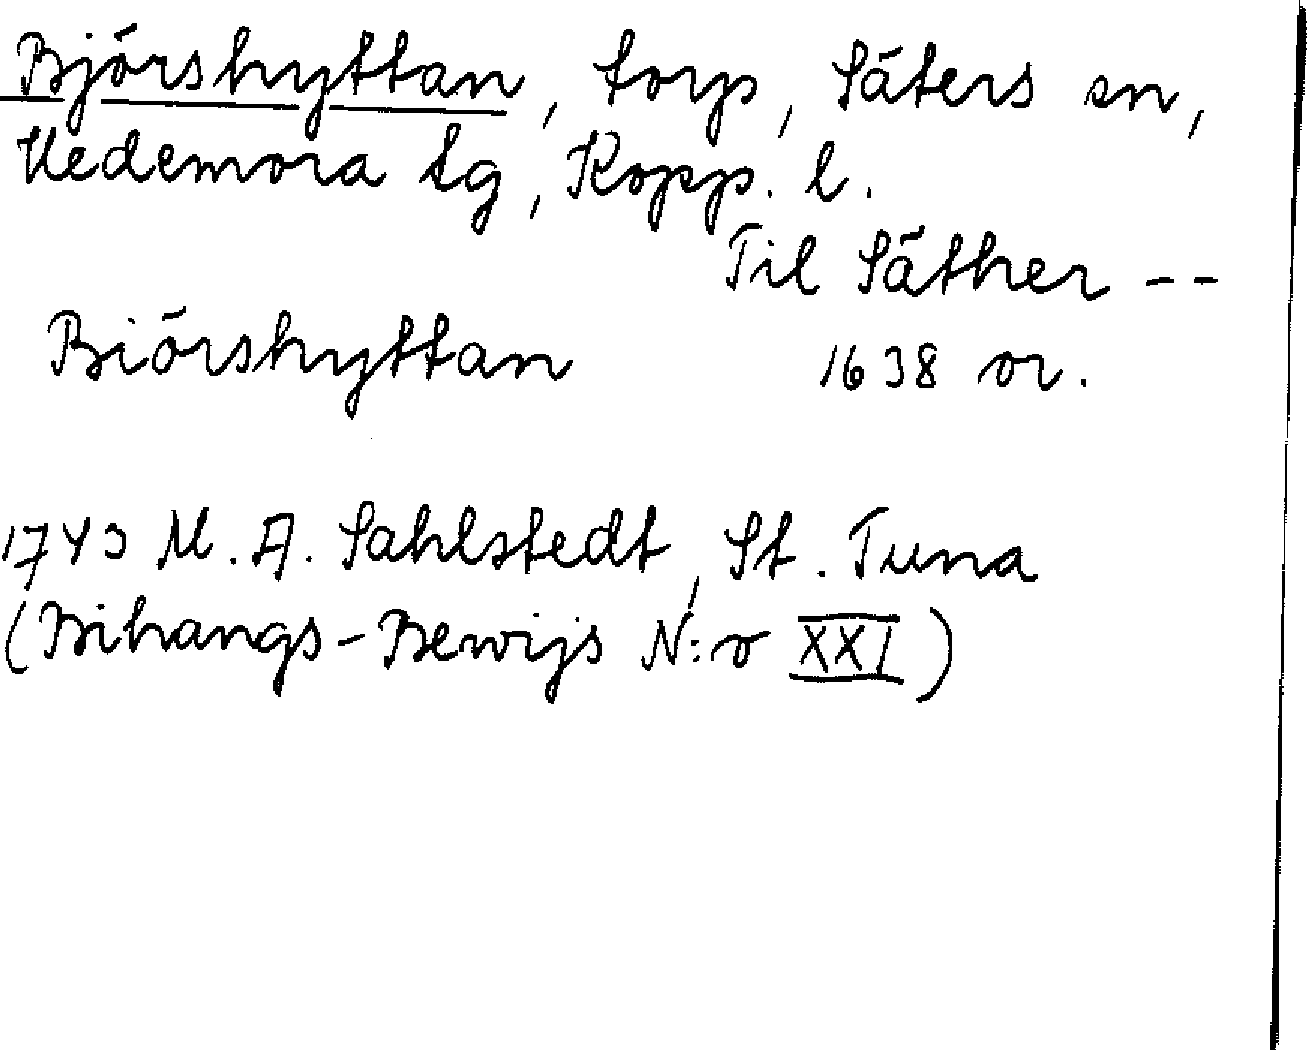 Björshyttan, torp, Säters sn,
Hedemora tg, Kopp. l.
Til Säther --
Biörshyttan 1638 or.
1743 M. A. Sahlstedt, St. Tuna
(Bihangs-Bewijs N:o XXI)